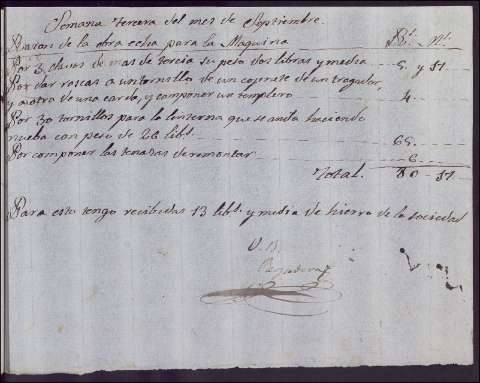 Semana tercera del mes de Septiembre.
Razon de la obra echa para la Maquina Rs. Ms.
Por 3 claves de mas de tercia su peso dos libras y media 5 y 17
Por dar roscas a un tornillo de un cojenete de un tragador,
y a otro de una carda, y componer un templero 4
Por 30 tornillos para la linterna que se anda haciendo
nueba con peso de 26 libs. 65
Por componer las tenazas de remontar 6
Total. 80 - 17
Para esto tengo recibidas 13 libs. y media de hierro de la sociedad
V. B.